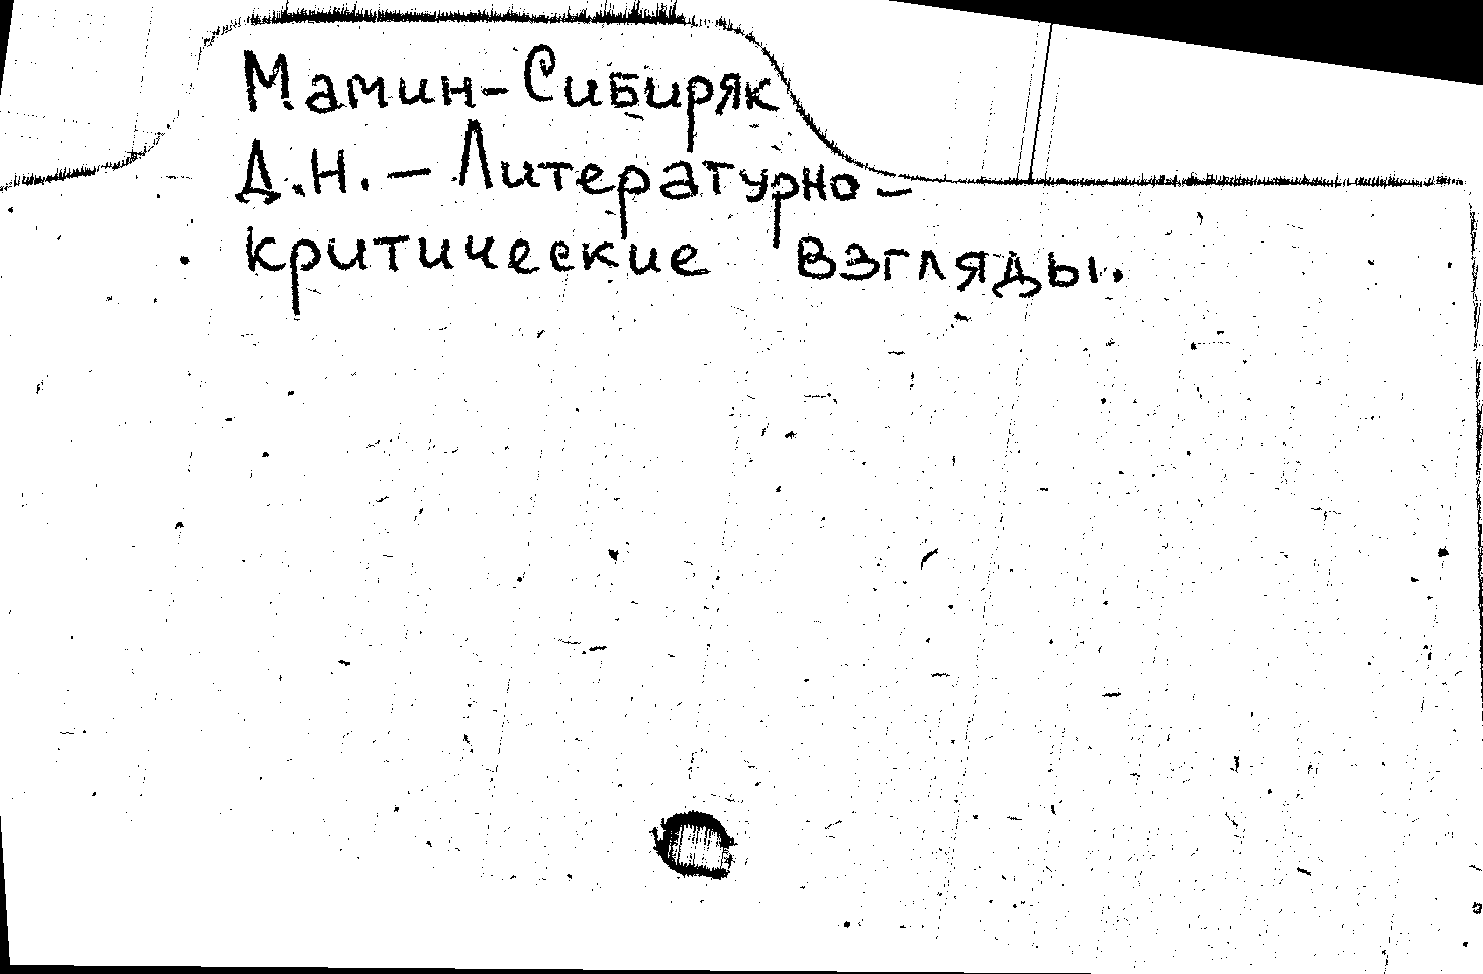 Мамин-Сибиряк
Д.Н. – Литературно-
критические взгляды.